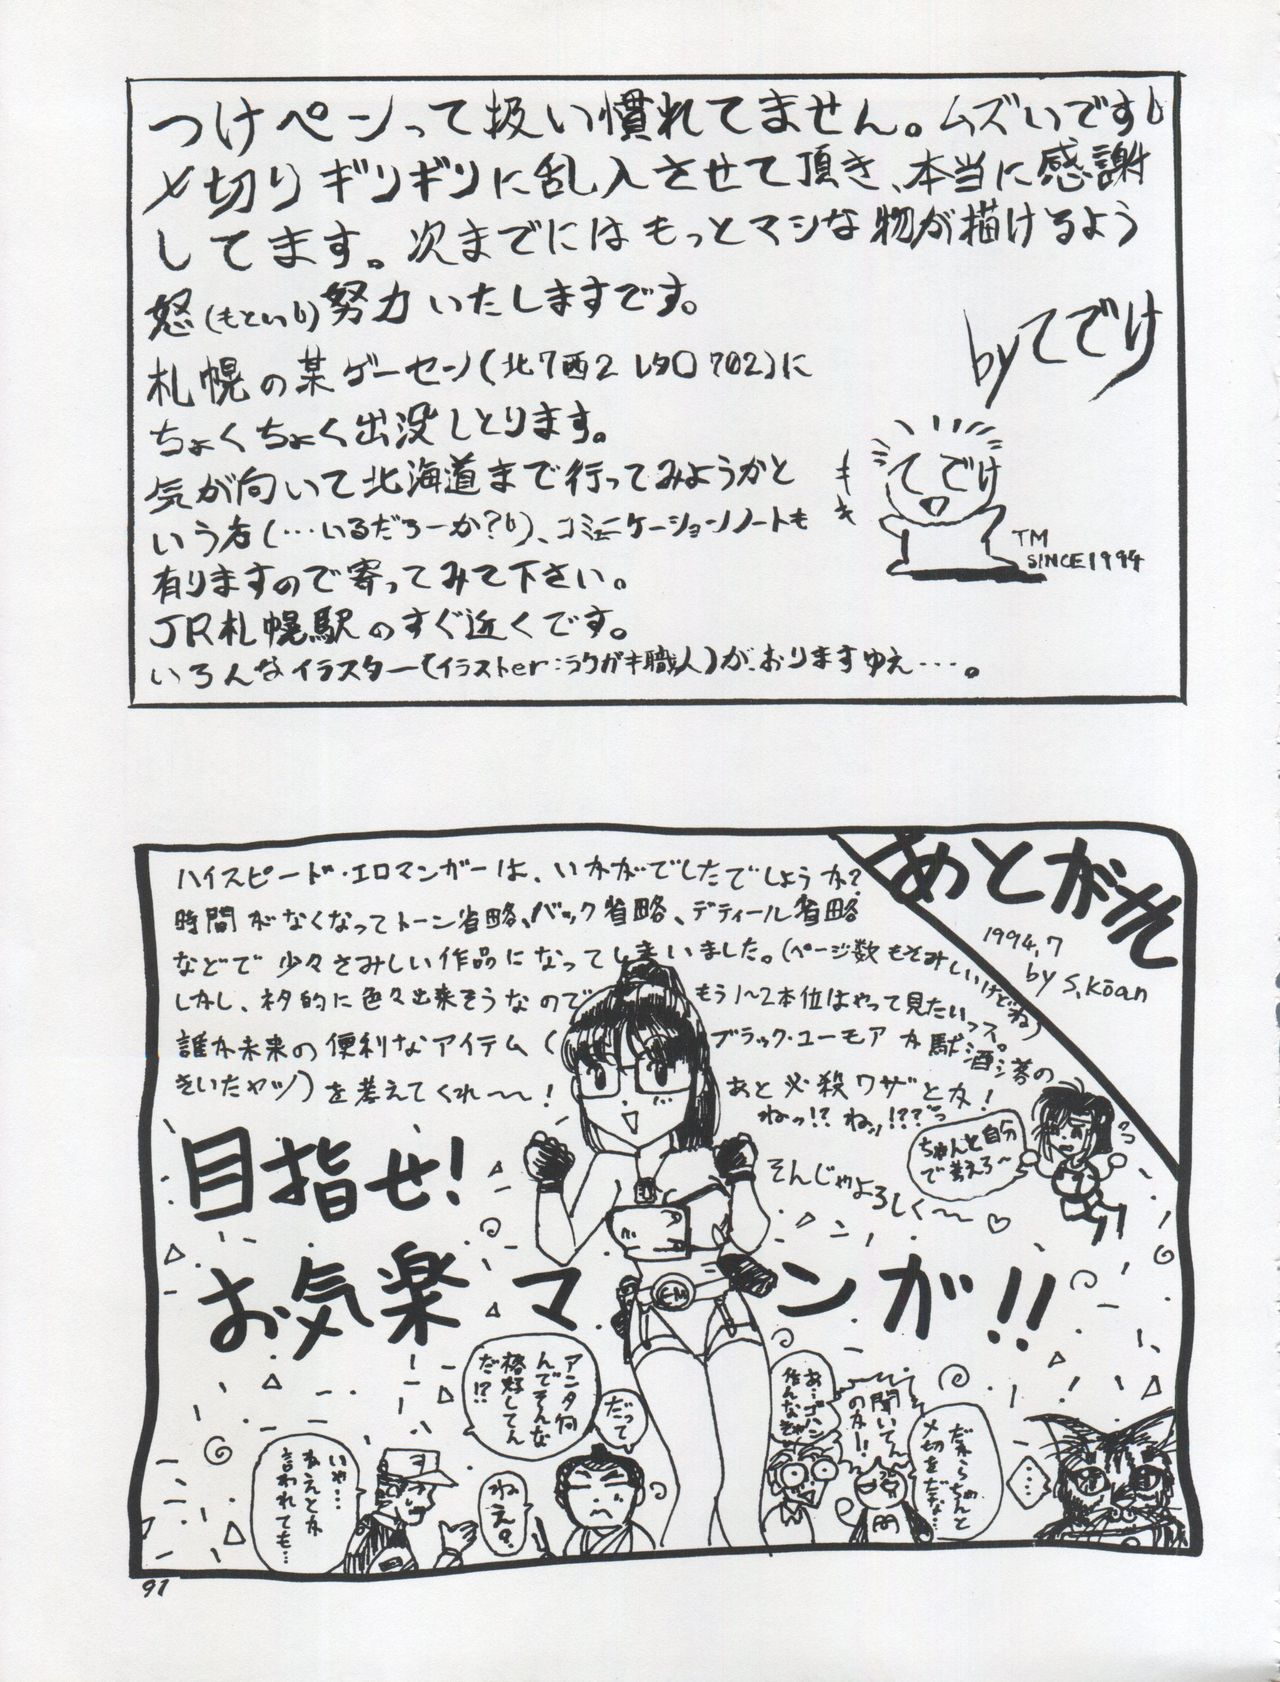 つけペンって扱い慣れてません。ムズいです
〆切りギリギリに乱入させて頂き、本当に感謝
してます。次までにはもっとマシな物が描けるよう
怒(もとい)努力いたしますです。
by てでけ
札幌の某ゲーセン(北7西2 レタロ702)に
ちょくちょく出没しとります。
気が向いて北海道まで行ってみようかと
いう方(…いるだろーか?)、コミニケーションノートも
有りますので寄ってみて下さい。
JR札幌駅のすぐ近くです。
いろんなイラスター(イラストer:ラクガキ職人)が、おりますゆえ…。
てでけ
TM
SINCE1994
あとがき
1994.7
by S.Kōan
ハイスピード・エロマンガーは、いかがでしたでしょうか?
時間がなくなってトーン省略、バック省略、ディテール省略
などで少々さみしい作品になってしまいました。(ページ数もさみしいけどね)
しかし、ネタ的に色々出来そうなので もう1〜2本位はやって見たいっス。
誰か未来の便利なアイテム(ブラック・ユーモアか駄洒落の
きいたヤツ)を考えてくれ〜〜!
あと必殺ワザとか!
ねっ!?ねッ!???
ちゃんと自分
で考えろ〜
そんじゃよろしく〜〜♡
目指せ!
お気楽マンガ!!
E-M
アンタ何
んでそんな
格好してん
だ!?
だって
ねえ?
いや…
ねえとか
言われても…
あ…ゴハン
作んなきゃ
聞いてん
のかー!!
だれらちゃんと
〆切をだな…
…
91